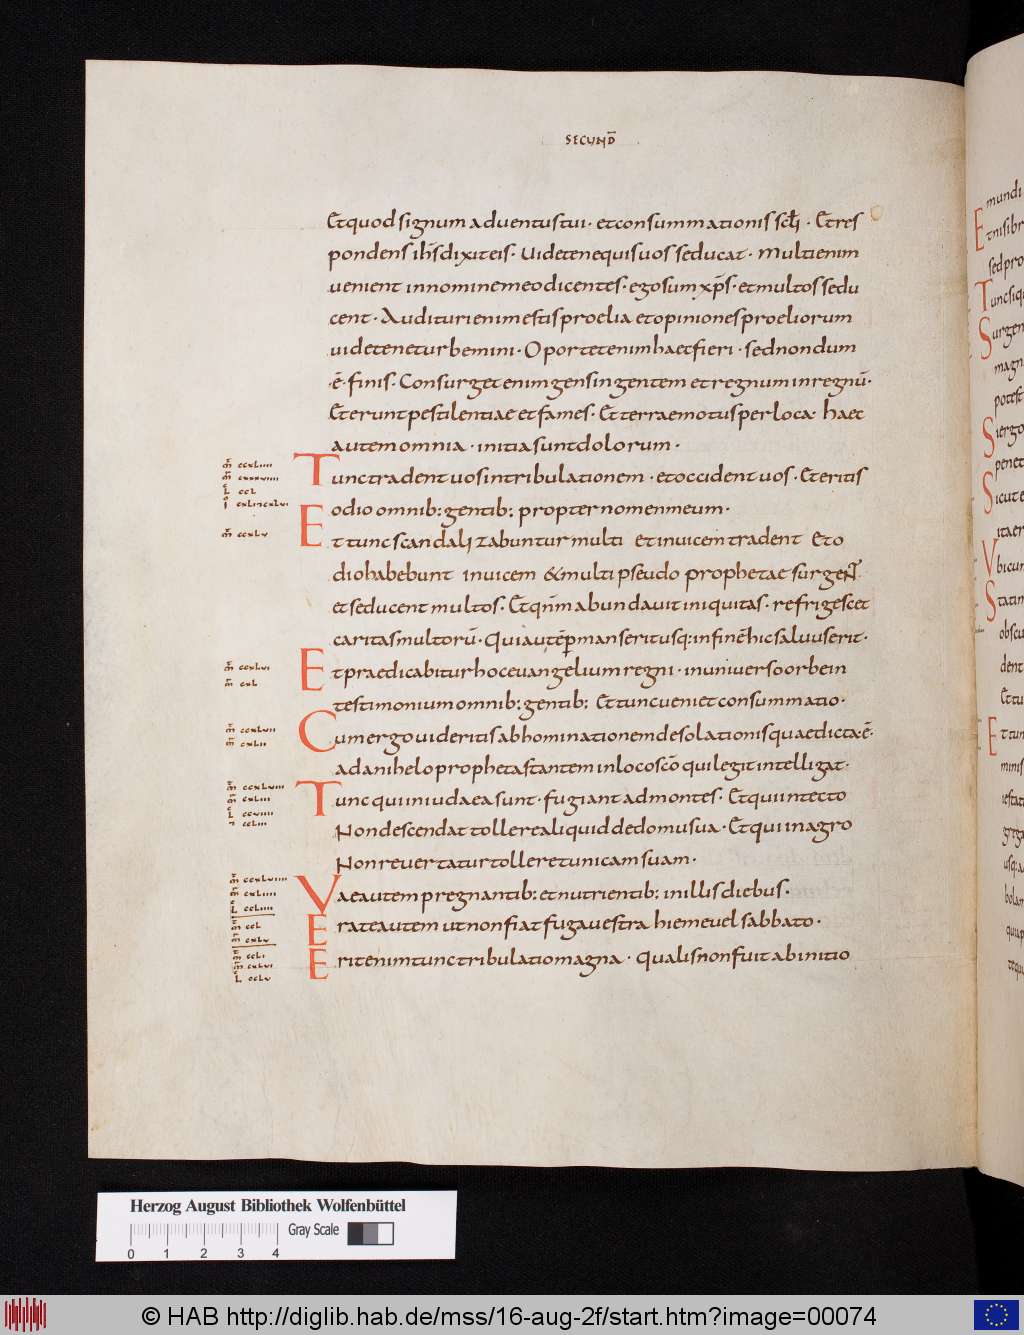 SECUND̄
Et quod signum aduentus tui · et consummationis sc̄li · Et res
pondens ih̄s dixit eis · Uidete ne quis uos seducat · Multi enim
uenient in nomine meo dicentes · ego sum xp̄s · et multos sedu
cent · Audituri enim estis proelia et opiniones proeliorum
uidete ne turbemini · Oportet enim haec fieri · sed nondum
·ē· finis · Consurget enim gens in gentem et regnum in regnū ·
Et erunt pestilentiae et fames · Et terraemotus per loca · haec
autem omnia · initia sunt dolorum ·
m̄ ccxliiii
Tunc tradent uos in tribulationem · et occident uos · Et eritis
l̄ ccl
odio omnib: gentib: propter nomen meum ·
m̄ ccxlv
Et tunc scandalizabuntur multi et inuicem tradent Et o
dio habebunt inuicem & multi pseudo prophetae surgeN̄ ·
et seducent multos · Et qn̄m abundauit iniquitas · refrigescet
caritas multorū · Qui autē p̄manserit usq: in finē hic saluus erit ·
m̄ ccxlvi
m̄ cxl
Et praedicabitur hoc euangelium regni · in uniuerso orbe in
testimonium omnib: gentib: Et tunc ueniet consummatio ·
m̄ ccxlvii
m̄ cxlii
Cum ergo uideritis abhominationem desolationis quae dicta ē ·
a danihelo propheta stantem in loco sc̄o qui legit intelligat ·
m̄ ccxlviii
m̄ cxliii
Tunc qui in iudaea sunt · fugiant ad montes · Et qui in tecto
Non descendat tollere aliquid de domu sua · Et qui in agro
Non reuertatur tollere tunicam suam ·
m̄ ccxlviiii
m̄ cxliiii
l̄ ccliiii
Vae autem pregnantib: et nutrientib: in illis diebus ·
m̄ ccl
m̄ cxlv
Erate autem ut non fiat fuga uestra hieme uel sabbato ·
m̄ ccli
m̄ cxlvi
l̄ cclv
Erit enim tunc tribulatio magna · qualis non fuit ab initio
mundi
Herzog August Bibliothek Wolfenbüttel
Gray Scale
0 1 2 3 4
© HAB http://diglib.hab.de/mss/16-aug-2f/start.htm?image=00074